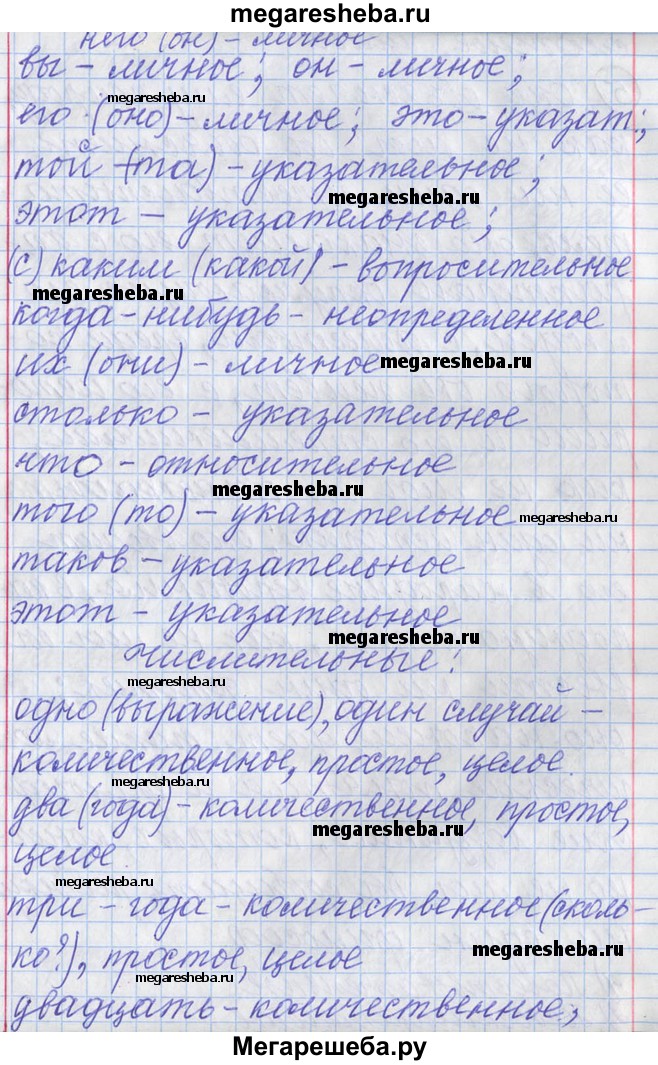 megaresheba.ru
него (он) - личное
вы - личное; он - личное;
megaresheba.ru
его (оно) - личное; это - указат.;
той (та) - указательное;
megaresheba.ru
этот - указательное;
(с) каким (какой) - вопросительное
megaresheba.ru
когда-нибудь - неопределенное
их (они) - личное megaresheba.ru
столько - указательное
что - относительное
megaresheba.ru
того (то) - указательное megaresheba.ru
таков - указательное
этот - указательное
megaresheba.ru
Числительные:
megaresheba.ru
одно (выражение), один случай -
количественное, простое, целое.
megaresheba.ru
два (года) - количественное, простое,
megaresheba.ru
целое.
megaresheba.ru
три - года - количественное (сколь-
ко?), простое, целое
megaresheba.ru
megaresheba.ru
двадцать - количественное,
Мегарешеба.ру